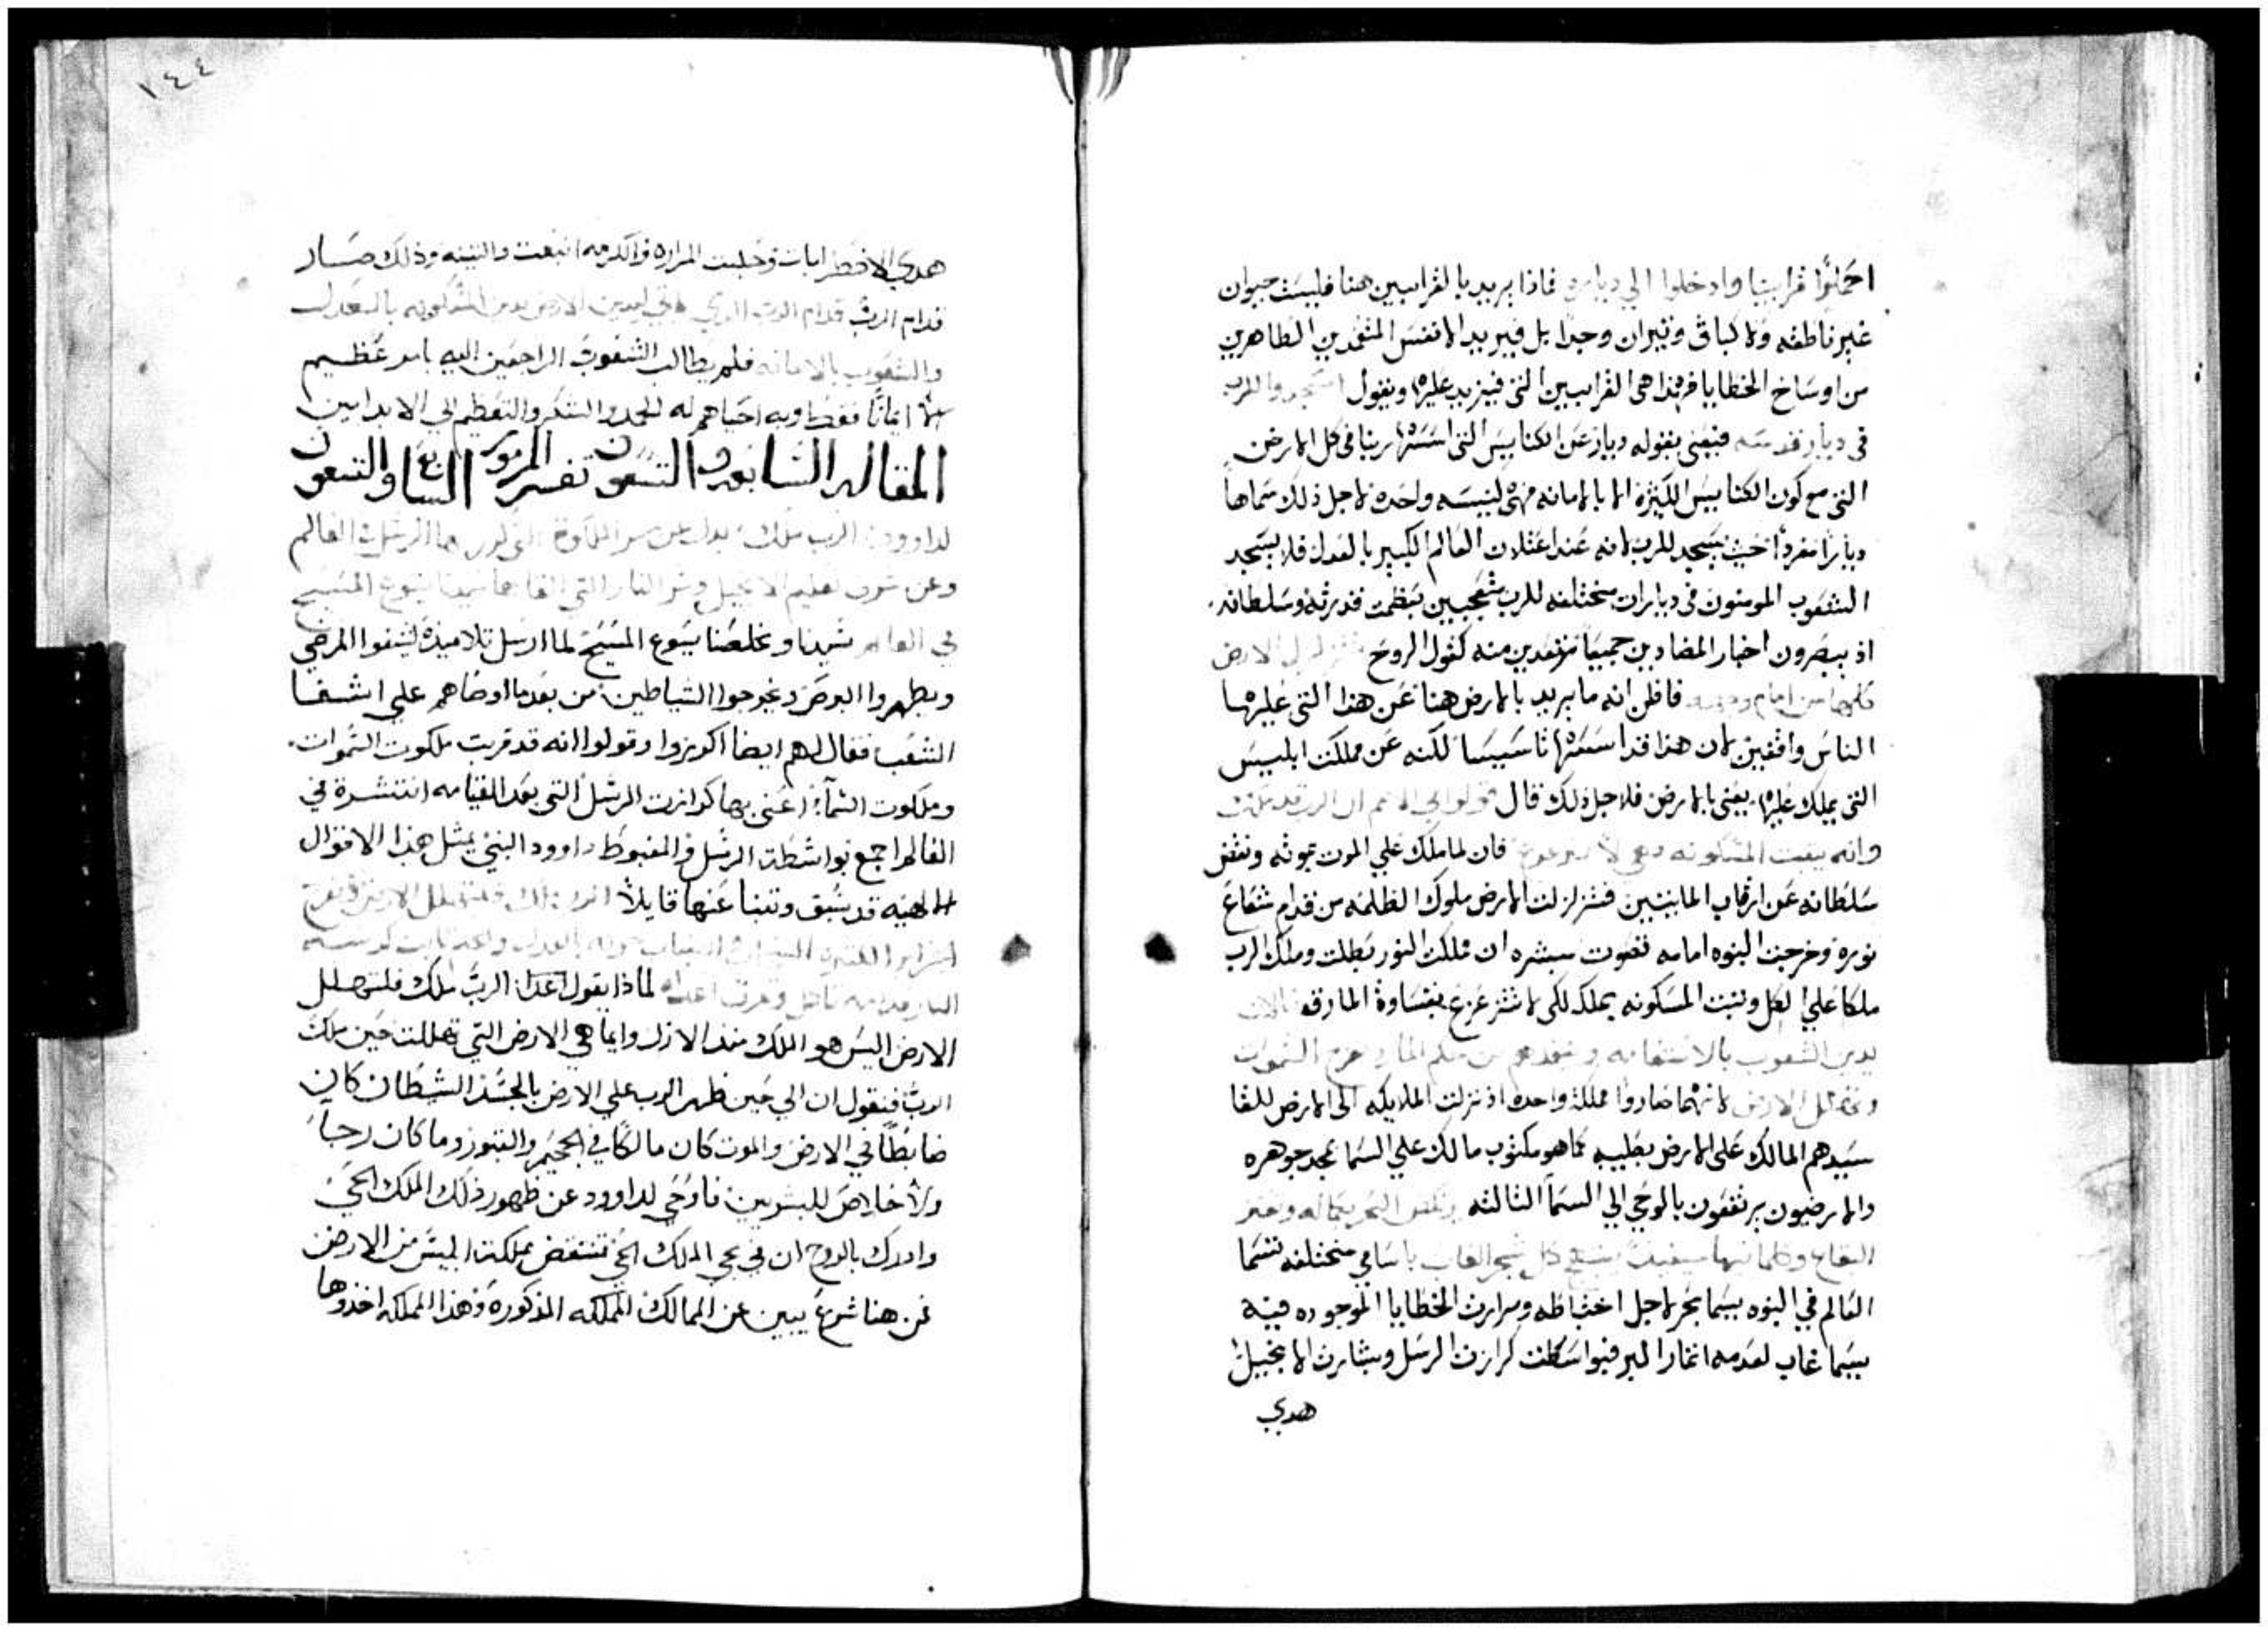 احملوا قرابينا وادخلوا الي دياره فماذا يريد بالقرابين هنا فليست حيوان
غير ناطقه ولا كباش وتيران وجدا بل فيريد الانفس المتقدين الطاهرين
من اوساخ الخطايا فهذا هي القرابين التي فيزيد عليها ويقول اسجدوا للرب
في ديار قدسه فيعني بقوله ديار عن الكنايس التي اسسها ربنا في كل الارض
التي مع كون الكنايس الكتيرة الا بالامانه فهي كنيسه واحده لاجل ذلك سماها
ديارا مفردا حيت يسجد للرب لانه عند اعتلان العالم الكبير بالعدل فلا يسجد
الشعوب المومنون في ديارات مختلفه للرب متعجبين بعظمت قدرته وسلطانه.
اذ يبصرون اخبار المضادين جميعا مرتعدين منه كقول الروح تتزلزل الارض
كلها من امام وجهه فاظن انه ما يريد بالارض هنا عن هذا التي عليها
الناس واقفين لان هذا قد اسسها تاسيسا لكنه عن مملكت ابليس
التي يملك عليها يعني بالارض فلاجل ذلك قال قولوا في الامم ان الرب قد ملك
وانه يتبت المسكونه دعي لا تتزعزع فان لما ملك علي الموت بموته ونقض
سلطانه عن ارقاب المايتين فتزلزلت الارض ملوك الظلمه من قدام شعاع
نوره وخرجت النبوه امامه تصوت مبشره ان مملكت النور بطلت وملك الرب
ملكا علي الكل وتبت المسكونه بملكه لكي لا تتزعزع بقساوة المارقه
يدين الشعوب بالاستقامه وينقدهم من ظلم المارد تفرح السموات
وتتهلل الارض لانهما صاروا مملكة واحده اذ نزلت الملايكه الي الارض للقا
سيدهم المالك علي الارض بصليبه كما هو مكتوب مالك علي السما بمجد جوهره
والارضيون يرتفعون بالوحي الي السما التالته يرتعش البحر بكماله وتفتر
البقاع وكلما فيها حينيد يبتهج كل شجر الغاب باسامي مختلفه تسما
العالم في النبوه بيسما بحر لاجل اختباطه ومرارت الخطايا الموجوده فيه
بيسما غاب لعدمه اتمار البر فبواسطت كرازت الرسل وبشارت الانجيل
هدي
١٤٤
هدي الاضطرابات وحليت المراره والكرمه اينعت والتينه وذلك صار
قدام الرب قدام الرب الدي ياتي ليدين الارض يدين المسكونه بالعدل
والشعوب بالامانه فلم يطالب الشعوب الراجعين اليه بامر عظيم
الا ايمانا فقط وبه احياهم له المجد والشكر والتعظيم الي الابد امين
المقاله السابعه والتسعون تفسير المزمور السابع والتسعون
لداوود الرب ملك يدل عن سر الكرازة التي كرر بها الرسل في العالم
وعن شرف تعليم الانجيل وعن النار التي القاها سيدنا يسوع المسيح
في العالم سيدنا ومخلصنا يسوع المسيح لما ارسل تلاميذه ليشفوا المرضي
ويطهروا البرص ويخرجوا الشياطين من بعدما اوصاهم علي اشفا
الشعب فقال لهم ايضا اكرزوا وقولوا انه قد قربت ملكوت السموات.
وملكوت السما اعني بها كرازت الرسل التي بعد القيامه انتشرة في
العالم اجمع بواسطت الرسل والمغبوط داوود النبي بمثل هذا الاقوال
الاهيه قد سبق وتنبا عنها قايلا الرب ملك فلتتهلل الارض وتفرح
الجزاير الكتيره السحاب والضباب حوله بالعدل والحكم تابت كرسيه
النار قدامه تاكل وتحرق اعداه لماذا يقول اعداه الرب ملك فلتتهلل
الارض اليس هو الملك منذ الازل وايما هي الارض التي تهللت حين ملك
الرب فنقول ان الي حين ظهر الرب علي الارض بالجسد الشيطان كان
ضابطا في الارض والموت كان مالكا في الجحيم والقبور وما كان رجا
ولا خلاص للبشريين فاوحي لداوود عن ظهور ذلك الملك الحي
وادرك بالروح ان في مجي الملك الحي تنتقض مملكت ابليس من الارض
فمن هنا شرع يبين عن الممالك المملكه المذكورة وهذا المملكه اخذوها